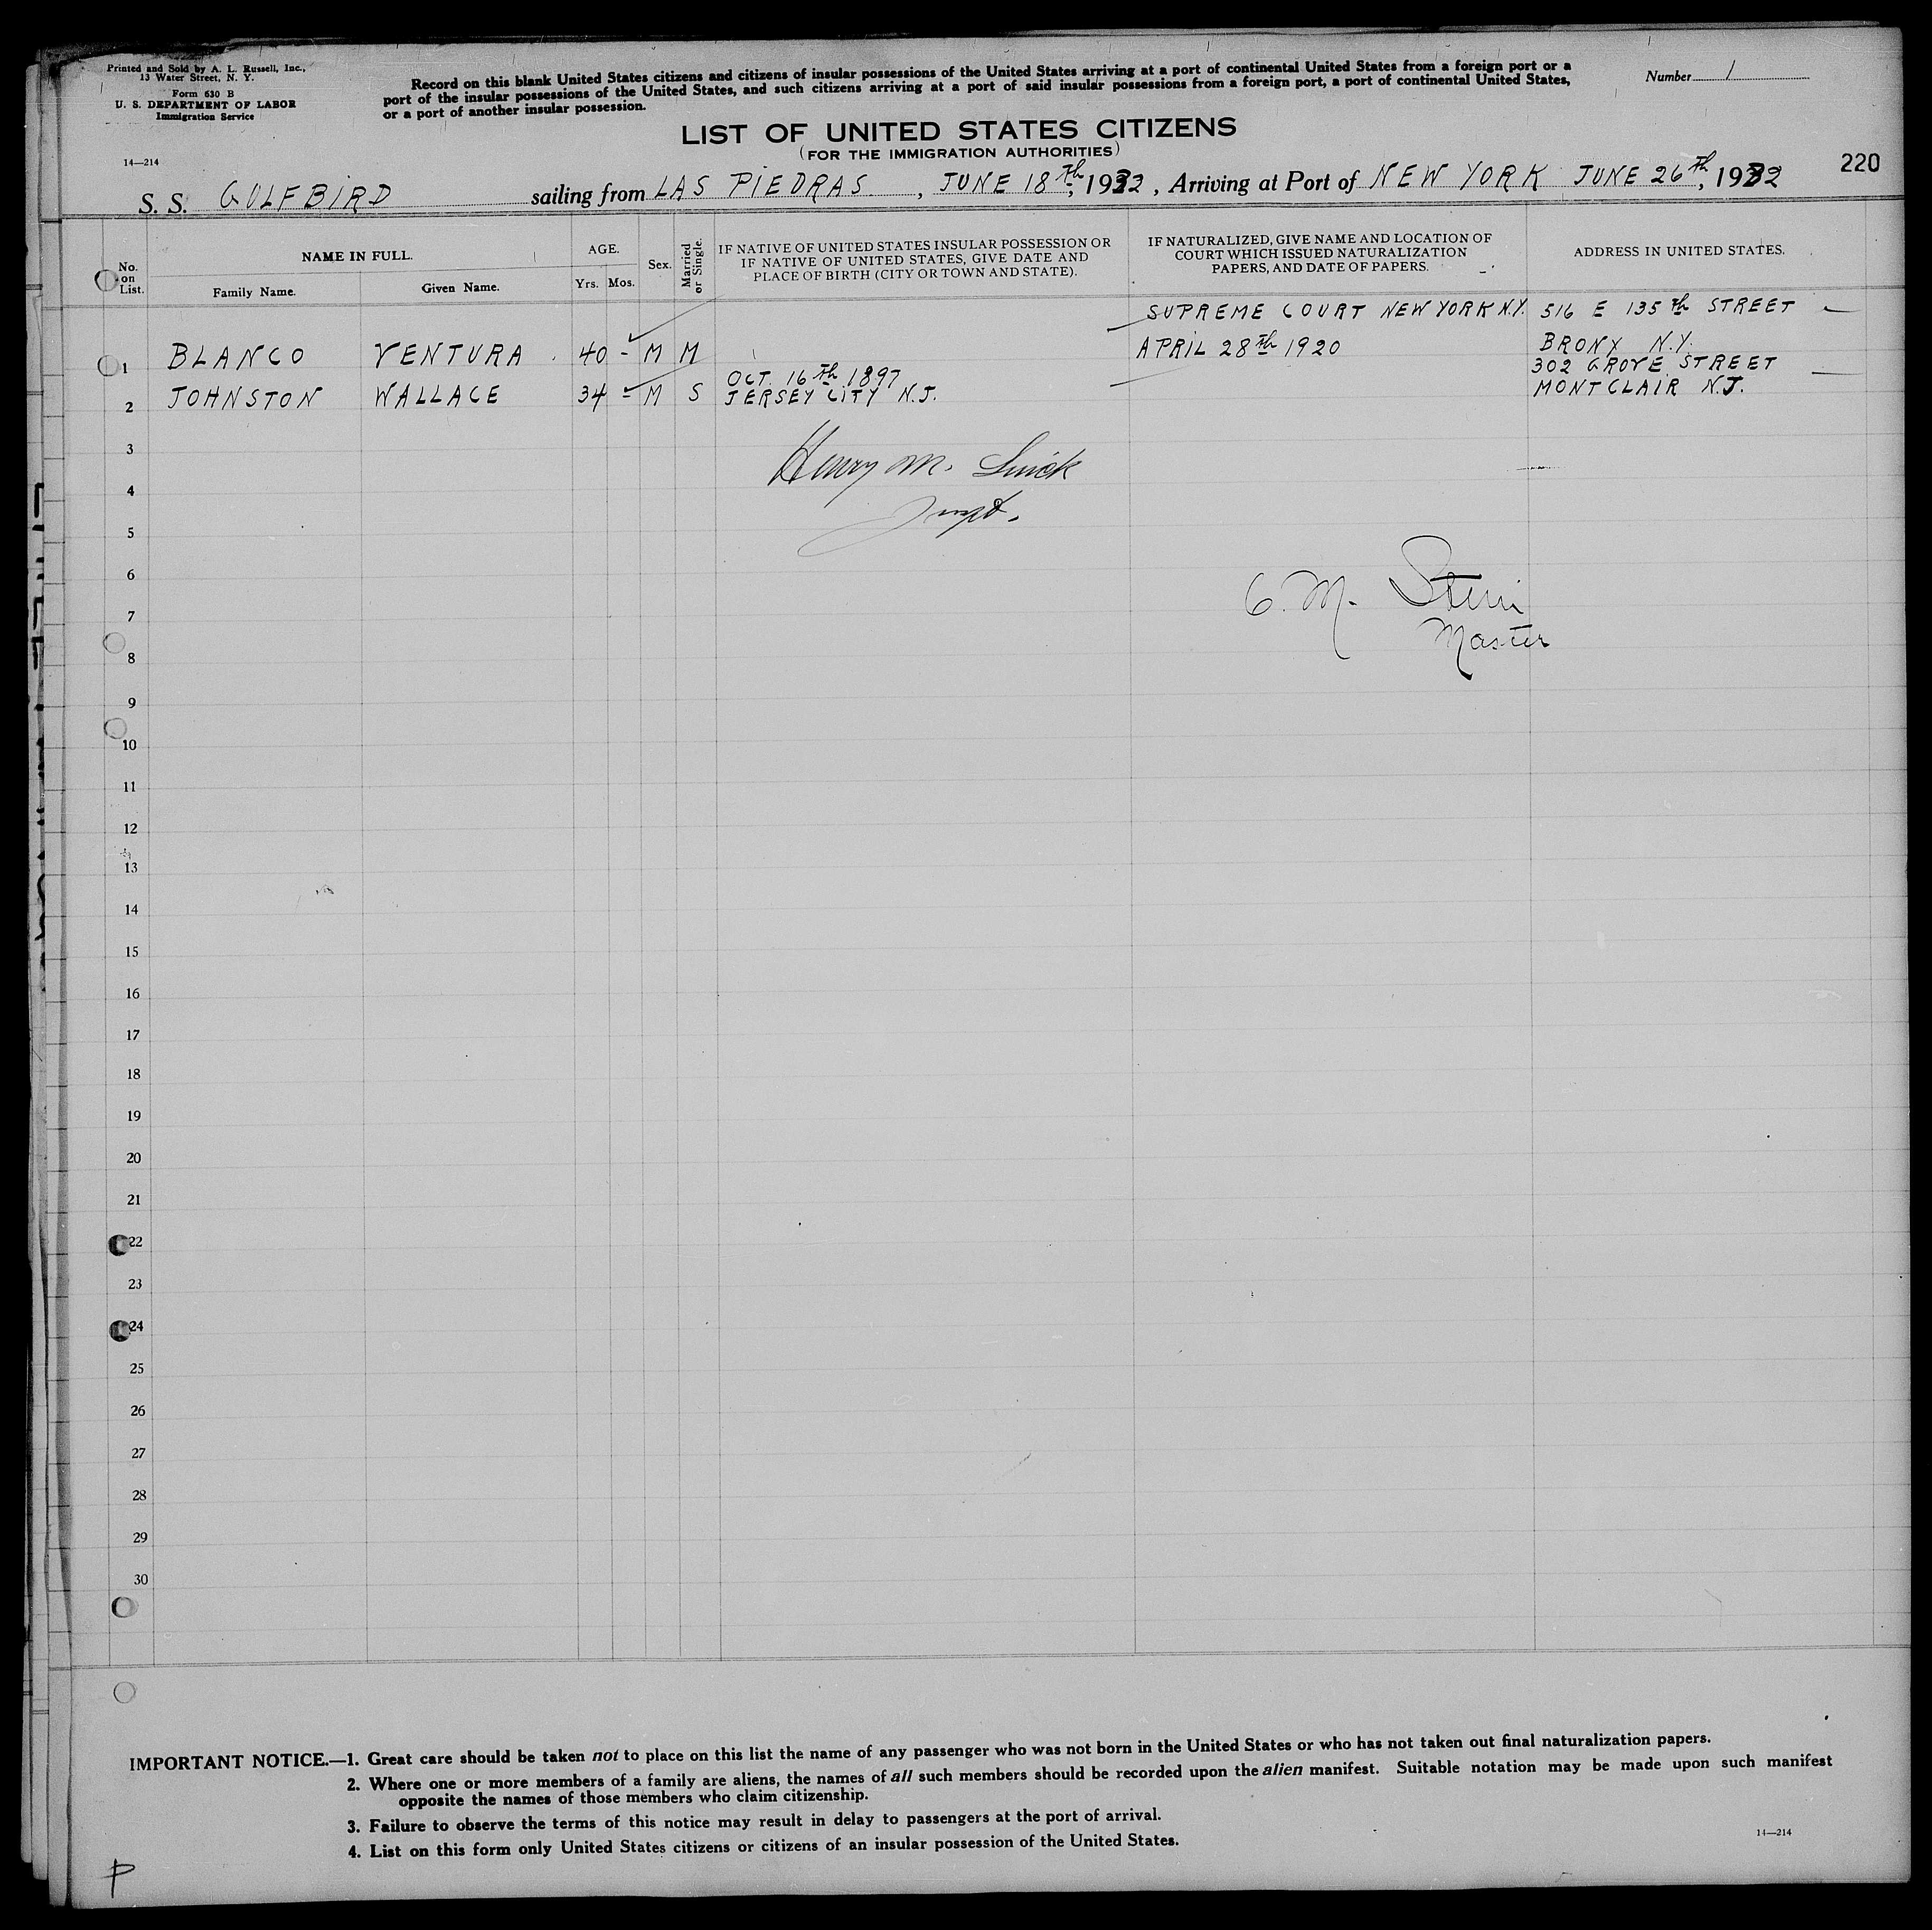 Printed and Sold by A. L. Russell, Inc.,
13 Water Street, N. Y.
Form 630 B
U. S. DEPARTMENT OF LABOR
Immigration Service
14—214
Record on this blank United States citizens and citizens of insular possessions of the United States arriving at a port of continental United States from a foreign port or a
port of the insular possessions of the United States, and such citizens arriving at a port of said insular possessions from a foreign port, a port of continental United States,
or a port of another insular possession.
Number 1
LIST OF UNITED STATES CITIZENS
(FOR THE IMMIGRATION AUTHORITIES)
220
S. S. GULFBIRD sailing from LAS PIEDRAS, JUNE 18th, 1932, Arriving at Port of NEW YORK JUNE 26th, 1932
No. on List.
NAME IN FULL.
Family Name.
Given Name.
AGE.
Yrs.
Mos.
Sex.
Married or Single.
IF NATIVE OF UNITED STATES INSULAR POSSESSION OR
IF NATIVE OF UNITED STATES, GIVE DATE AND
PLACE OF BIRTH (CITY OR TOWN AND STATE).
IF NATURALIZED, GIVE NAME AND LOCATION OF
COURT WHICH ISSUED NATURALIZATION
PAPERS, AND DATE OF PAPERS.
ADDRESS IN UNITED STATES.
SUPREME COURT NEW YORK N.Y. 516 E 135th STREET
1 BLANCO VENTURA 40 - M M APRIL 28th 1920 BRONX N.Y.
OCT. 16th 1897 302 GROVE STREET
2 JOHNSTON WALLACE 34 - M S JERSEY CITY N.J. MONTCLAIR N.J.
3
Henry M.
4
5
6
C. M.
7
Master
8
9
10
11
12
13
14
15
16
17
18
19
20
21
22
23
24
25
26
27
28
29
30
IMPORTANT NOTICE.—1. Great care should be taken not to place on this list the name of any passenger who was not born in the United States or who has not taken out final naturalization papers.
2. Where one or more members of a family are aliens, the names of all such members should be recorded upon the alien manifest. Suitable notation may be made upon such manifest
opposite the names of those members who claim citizenship.
3. Failure to observe the terms of this notice may result in delay to passengers at the port of arrival.
4. List on this form only United States citizens or citizens of an insular possession of the United States.
14—214
P